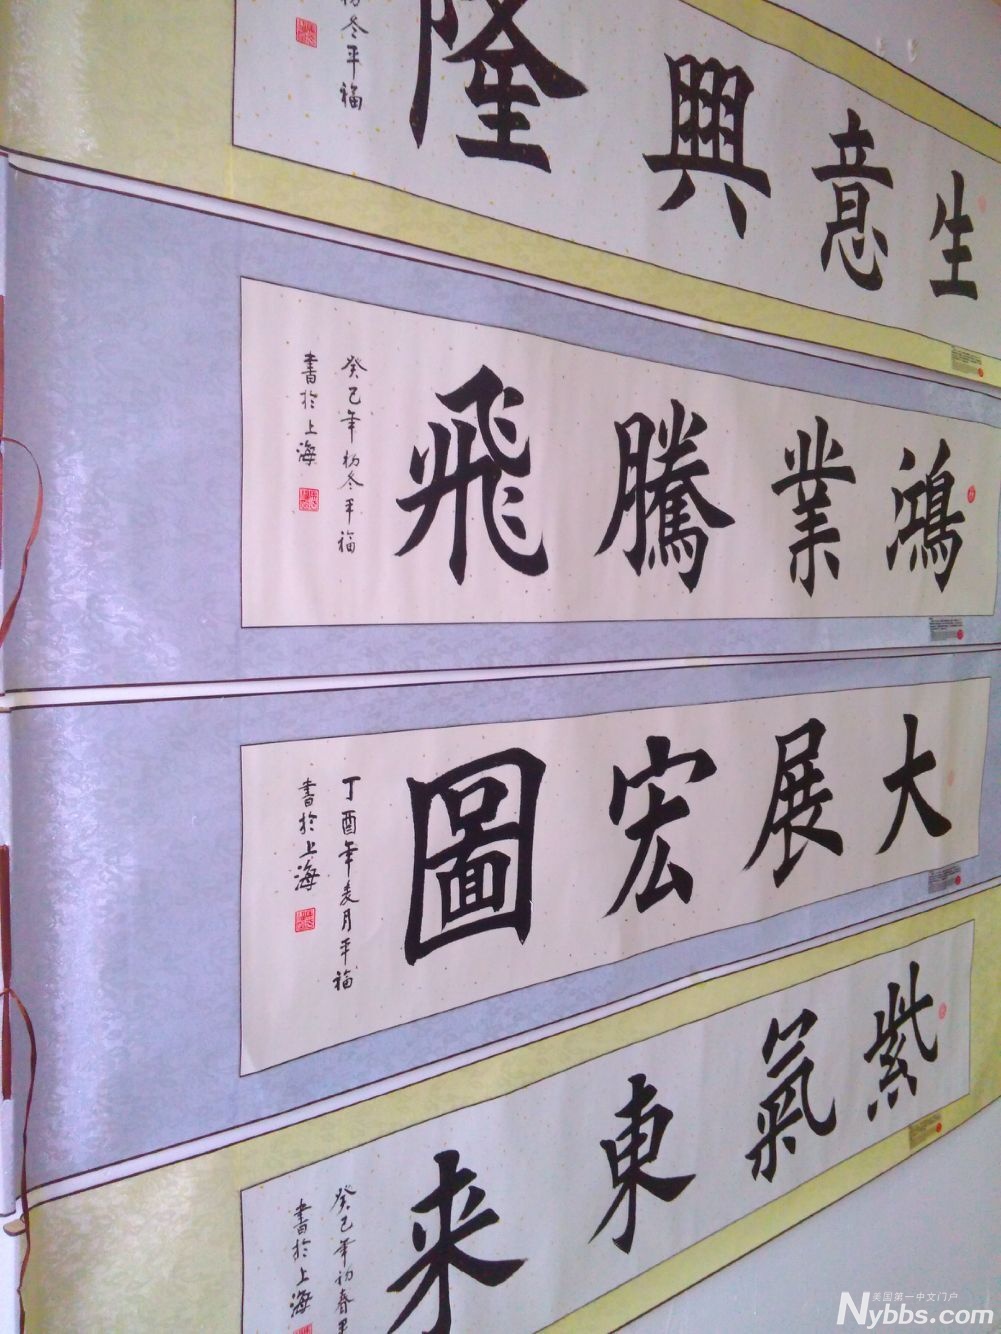 生意興隆
初冬平福
鴻業騰飛
癸巳年初冬平福
書於上海
大展宏圖
丁酉年麦月平福
書於上海
紫氣東来
癸巳年初春平
書於上海
美国第一中文门户
Nybbs.com